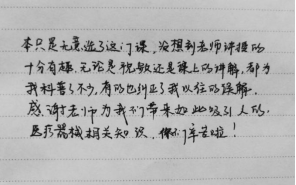 本只是无意选了这门课,没想到老师讲授的
十分有趣,无论是视频还是课上的讲解,都为
我科普了不少,有的也纠正了我以往的误解。
感谢老师为我们带来如此吸引人的,
医疗器械相关知识,你们辛苦啦!